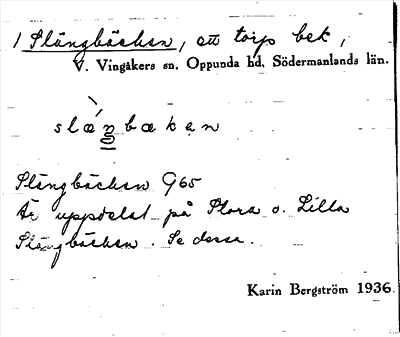 1 Slängbäcken, ett torp bek,
V. Vingåkers sn, Oppunda hd, Södermanlands län.
slæ̀ŋbækən
Slängbäcken G65
Är uppdelat på Stora o. Lilla
Slängbäcken. Se dessa.
Karin Bergström 1936.